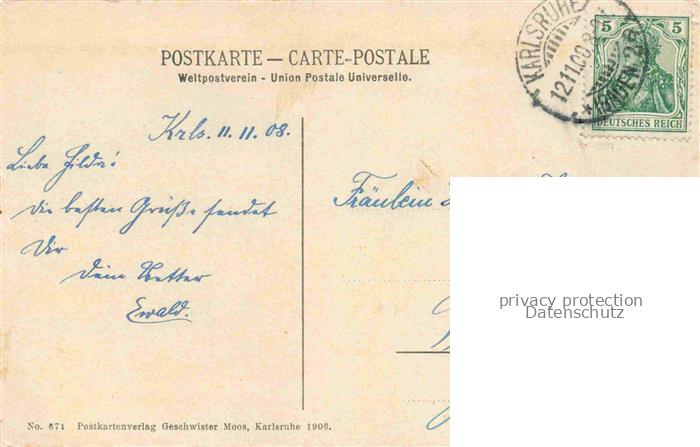 POSTKARTE — CARTE-POSTALE
Weltpostverein - Union Postale Universelle.
KARLSRUHE
12.11.08.8-9
* (BADEN) 2 B.
5 5
DEUTSCHES REICH
Krls. 11. 11. 08.
Liebe Hilda!
die besten Grüße sendet
Dir
Dein Vetter
Ewald.
Fräulein
privacy protection
Datenschutz
No. 671 Postkartenverlag Geschwister Moos, Karlsruhe 1906.